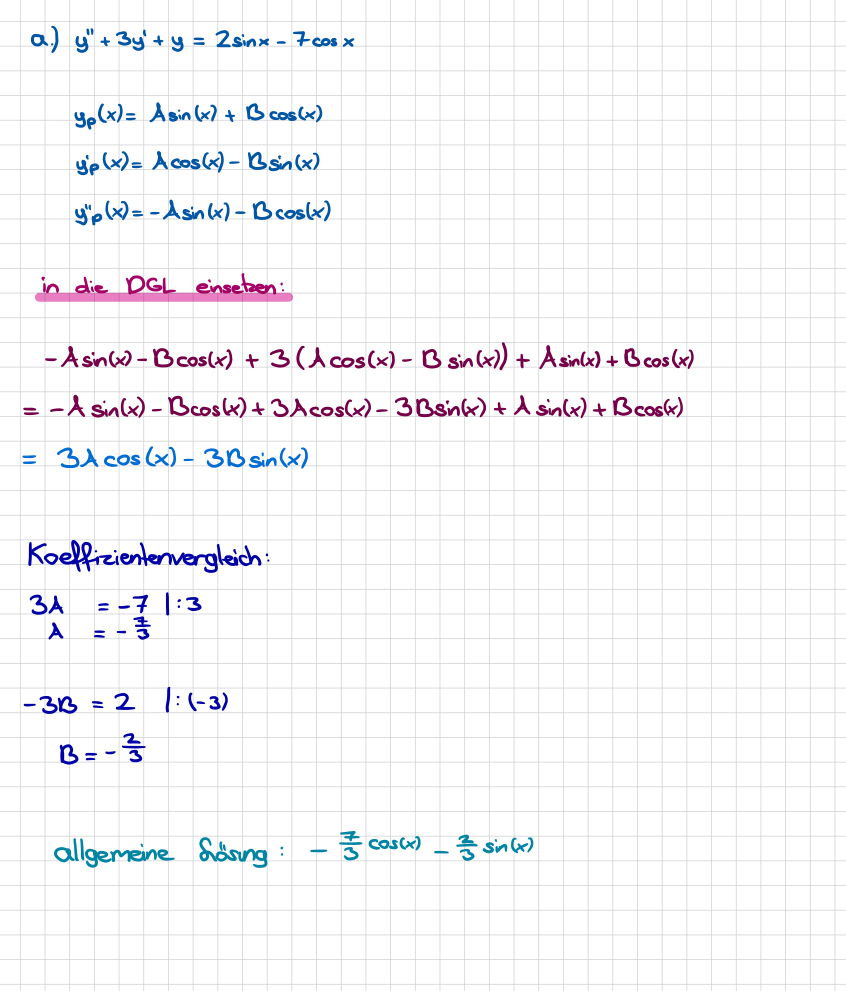 a.) y'' + 3y' + y = 2sinx - 7cosx
yₚ(x) = A sin(x) + B cos(x)
y'ₚ(x) = A cos(x) - B sin(x)
y''ₚ(x) = -A sin(x) - B cos(x)
in die DGL einsetzen:
-A sin(x) - B cos(x) + 3 (A cos(x) - B sin(x)) + A sin(x) + B cos(x)
= -A sin(x) - B cos(x) + 3A cos(x) - 3B sin(x) + A sin(x) + B cos(x)
= 3A cos(x) - 3B sin(x)
Koeffizientenvergleich:
3A = -7 |:3
A = -7/3
-3B = 2 |:(-3)
B = -2/3
allgemeine Lösung: - 7/3 cos(x) - 2/3 sin(x)